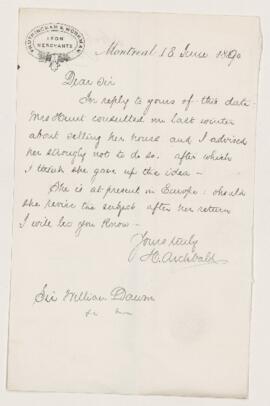 FROTHINGHAM & WORKMAN
IRON
MERCHANTS
Montreal 18 June 1890
Dear Sir
In reply to yours of this date.
Mrs Hunt consulted me last winter
about selling her house and I advised
her strongly not to do so. after which
I think she gave up the idea —
She is at present in Europe: should
she revive the subject after her return
I will let you know —
Yours truly
H. Archbald
Sir William Dawson